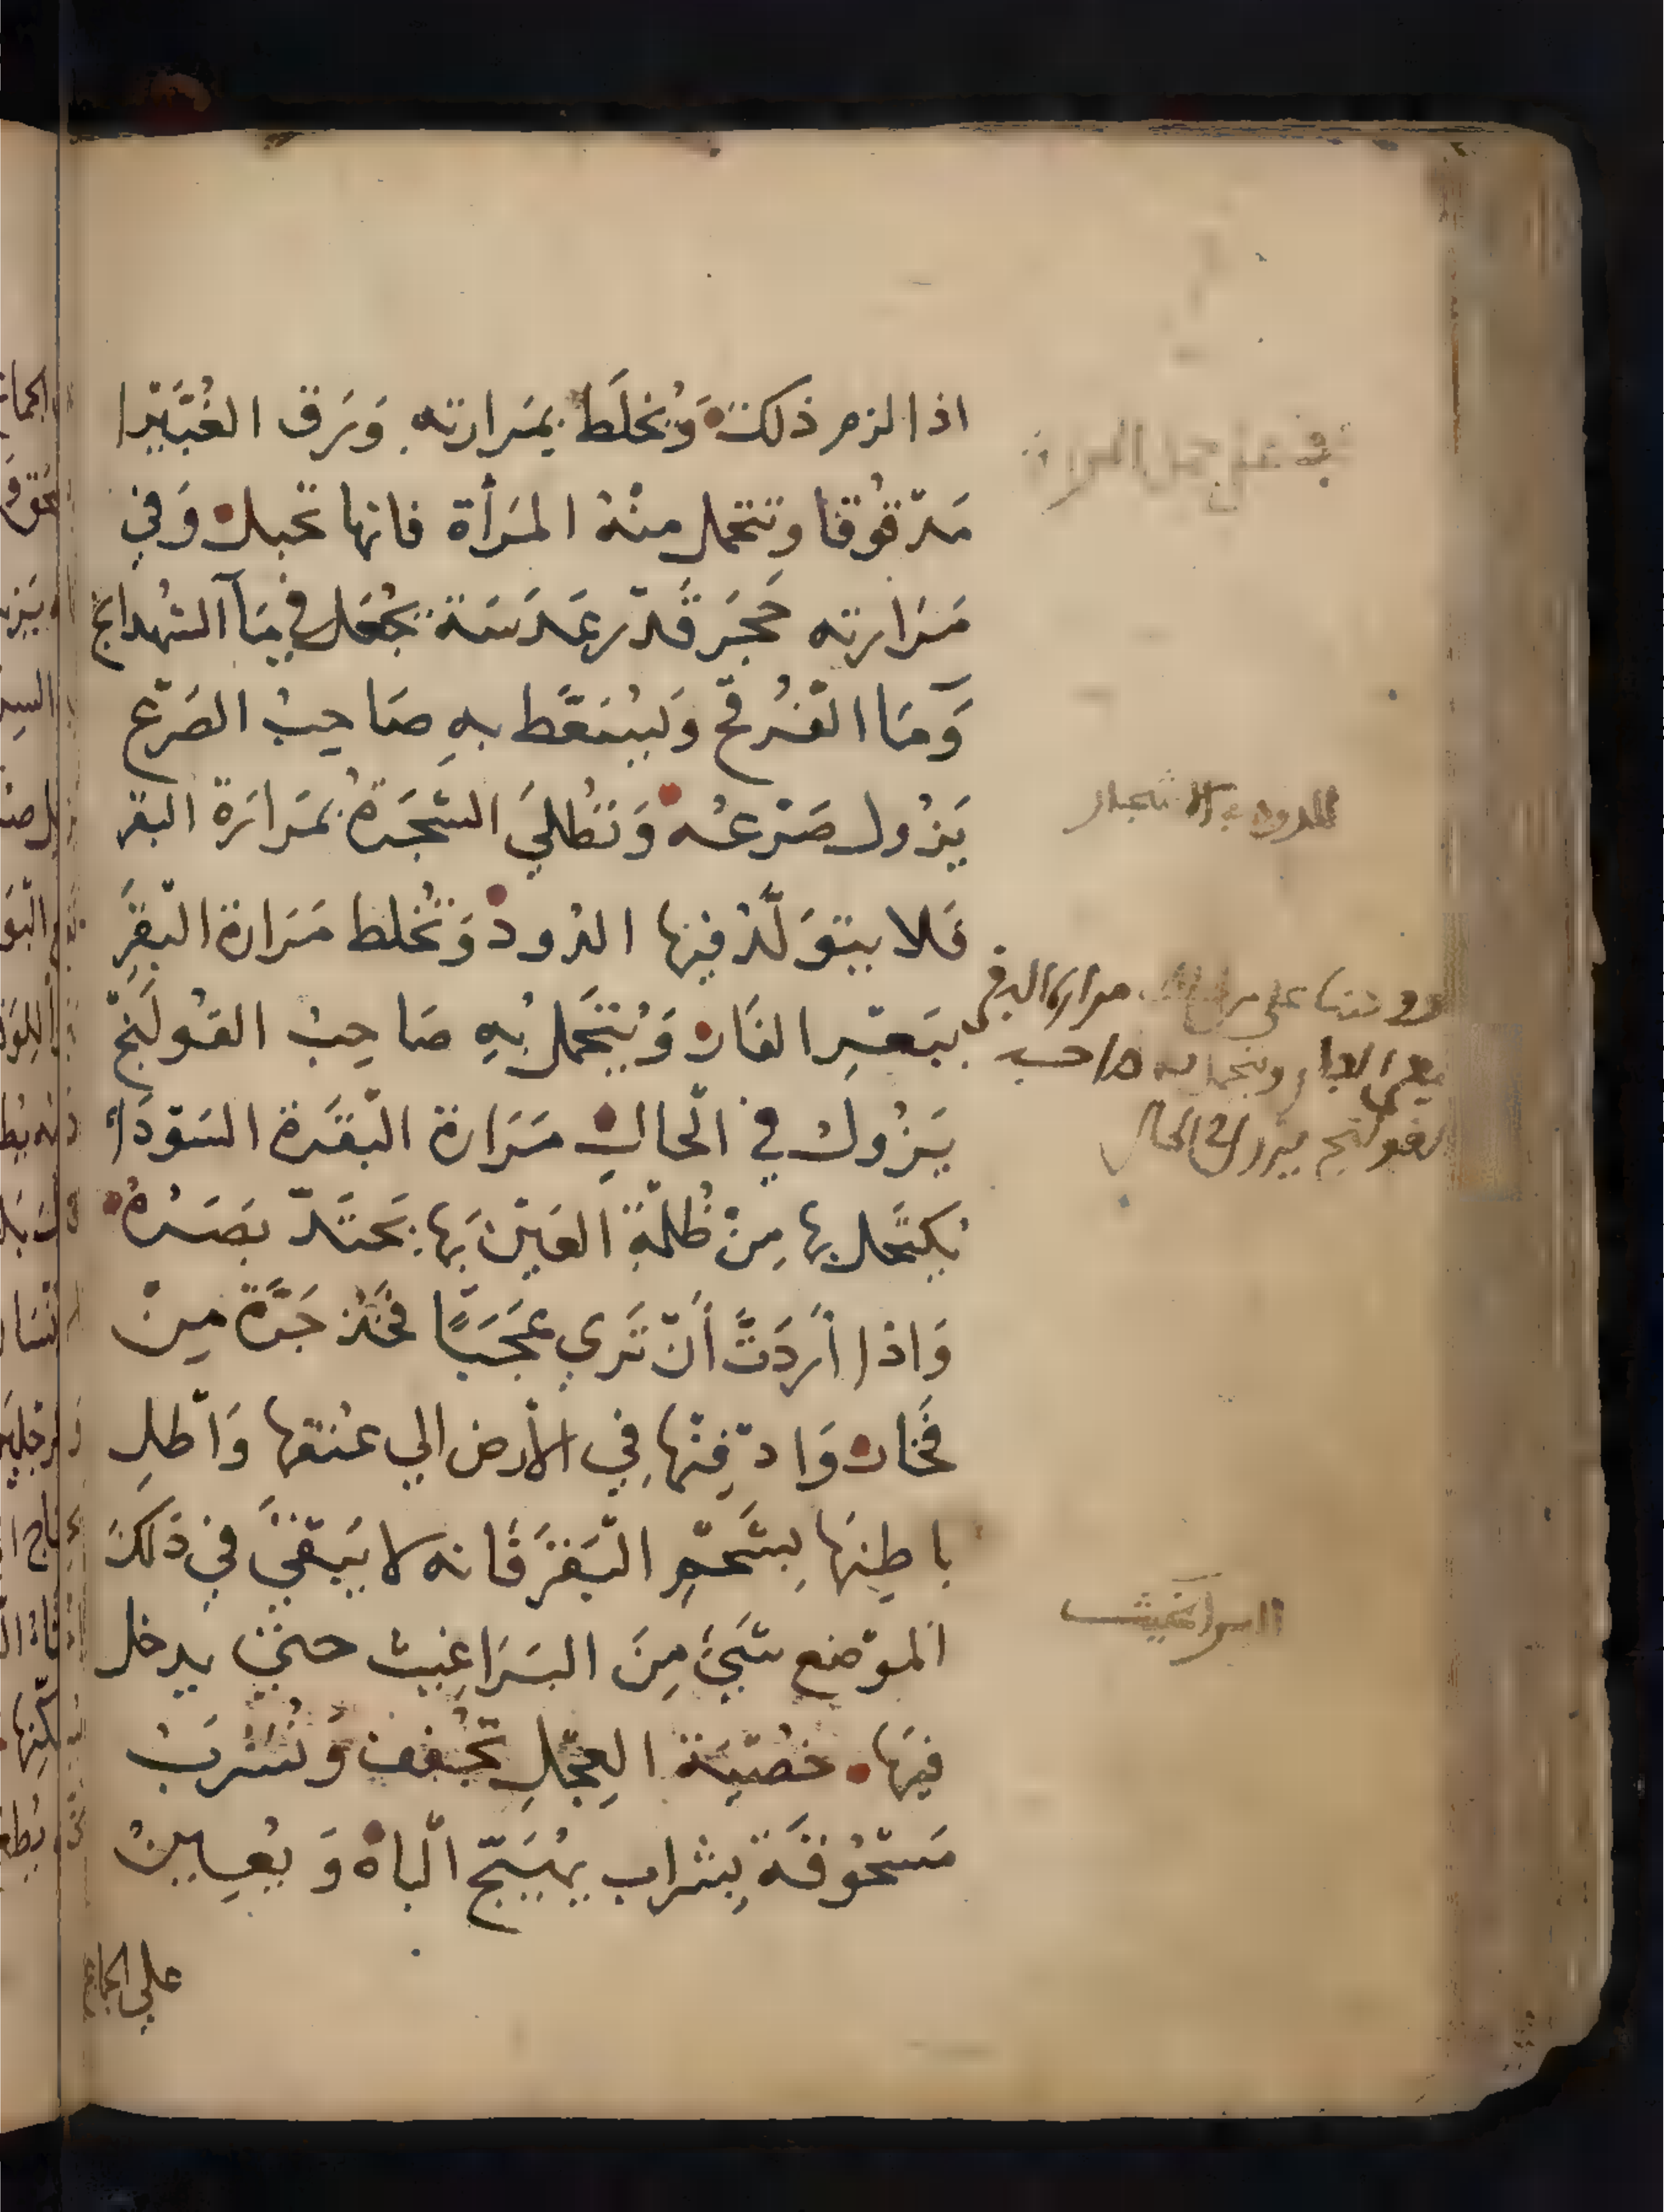 اذا لزم ذلك وَيُخلَط بمَرارته وَرق الغُبَيْرا
مَدْقُوقا وتتحمل منْهُ المَرأة فانها تحبل وَفي
مَرَارته حَجَر قَدْر عَدَسَة يُجْعَل في مَآ الشهدانج
وَمَا الفَرْفخ وَيُسَعَّط بهِ صَاحِبُ الصَرْع
يَزُول صَرْعُه وَتُطْلَي الشَجَرةُ بمَرارَة البقر
فَلا يتوَلَّدُ فيها الدُود وَتُخْلط مَرَارة البْقَرِ
ببَعْرِ الفَار وَيُتَحَمل بُهِ صَاحِبُ القُولَنْج
يَزُول في الْحالِ مَرَارة الْبَقَرة السَوْدَاء
يُكتَحَل بها مِنْ ظُلمْة العَيْن بَها يَحتَدّ بَصَرُهُ
وَاذا أرَدَتَّ أنْ تَري عَجَبًا فَخُذ جَرَّة مِنْ
فَخار وَادْفِنْها فِي الأرض الي عُنقها وَاطْلِ
باطِنهَا بِشَحْمِ الْبَقَر فَانه لا يَبْقَي في ذَلكَ
المَوْضع شَيئ مِنَ البَرَاغيث حتي يدخل
فيهَا خصْيَة العِجْلِ تُجَفف وَتُشْرَبُ
مَسْحُوقَة بِشَراب يُهَيَّج الْباه وَ يُعِينُ
علي الجماع
للدود في الاشجار
مرارة البقر
ببعر الفار ويتحمل به صاحب
القولنج يزول في الحال
البراغيث